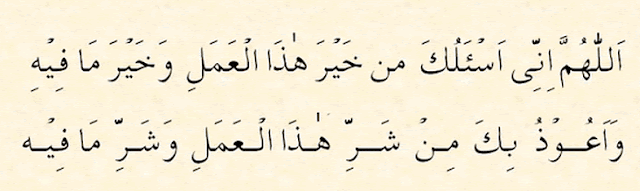 اَللّٰهُمَّ اِنِّى اَسْئَلُكَ من خَيْرَ هٰذَا الْعَمَلِ وَخَيْرَ مَا فِيْهِ
وَاَعُوْذُ بِكَ مِنْ شَرِّ هٰذَا الْعَمَلِ وَشَرِّ مَا فِيْه